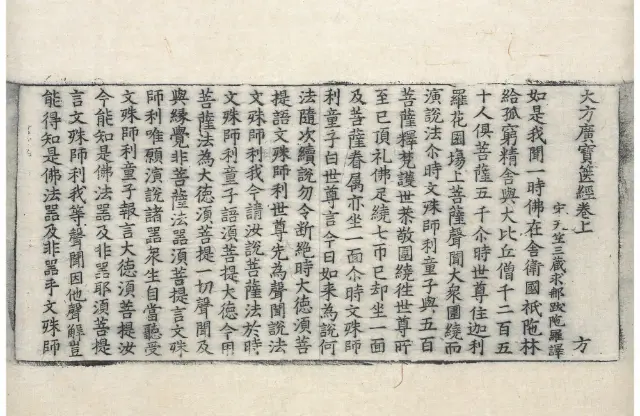 大方廣寶篋經卷上 方
宋天竺三蔵求那跋陁羅譯
如是我聞一時佛在舍衛國祇陁林
給孤窮精舍與大比丘僧千二百五
十人俱菩薩五千尒時世尊住迦利
羅花園場上菩薩聲聞大衆圍繞而
演說法尒時文殊師利童子與五百
菩薩釋梵護世恭敬圍繞往世尊所
至已頂礼佛足繞七帀已却坐一面
及菩薩眷属亦坐一面尒時文殊師
利童子白世尊言今日如来為說何
法隨次續說勿令断絶時大德湏菩
提語文殊師利世尊先為聲聞說法
文殊師利我今請汝說菩薩法於時
文殊師利童子語湏菩提大德今用
菩薩法為大德湏菩提一切聲聞及
與緣覺非菩薩法器湏菩提言文殊
師利唯願演說諸器衆生自當聽受
文殊師利童子報言大德湏菩提汝
今能知是佛法器及非器耶湏菩提
言文殊師利我等聲聞因他聲解豈
能得知是佛法器及非器乎文殊師